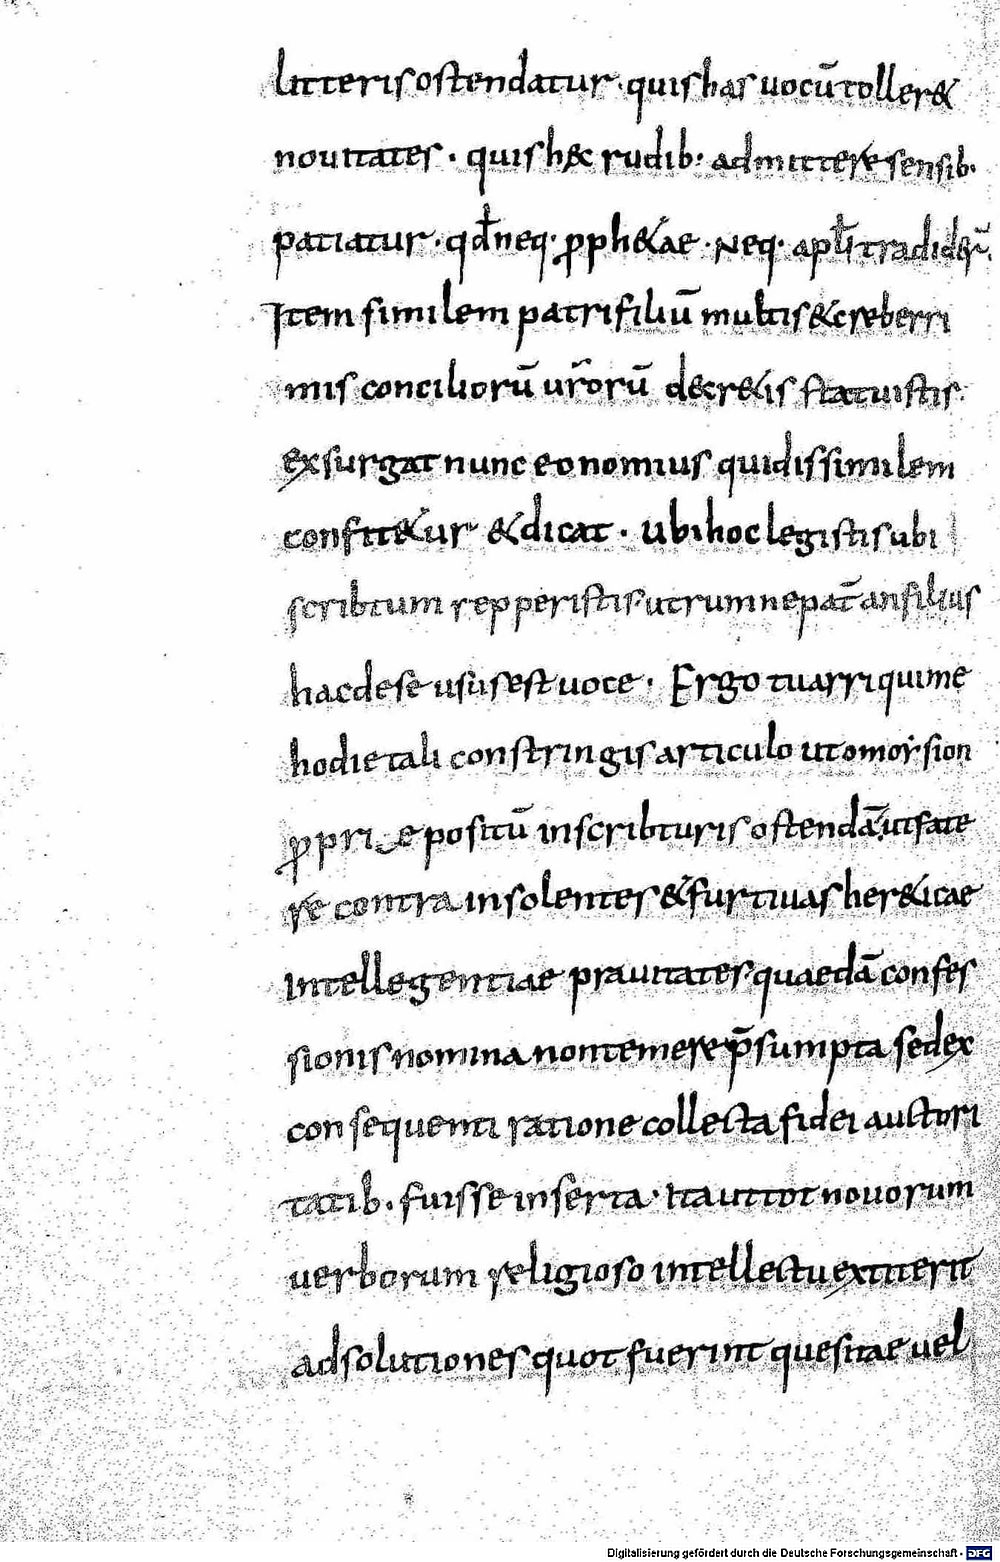 litteris ostendatur · quis has uocū toller&
nouitates · quis h&c rudib: admittere sensib.
patiatur · qđ neq· ꝓph&ae · Neq· apłi tradider̄.
Item similem patri filiū multis & creberri
mis conciliorū ur̄orū decr&is statuistis·
exsurgat nunc eonomius qui dissimilem
confit&ur & dicat · ubi hoc legistis ubi
scribtum repperistis· utrumne pat̄ an filius
hac de se usus est uoce · Ergo tu arri qui me
hodie tali constringis articulo ut omoysion
ꝓprie positū in scribturis ostendā; ut fate
re contra insolentes & furtiuas her&icae
intellegentiae prauitates· quaedā confes
sionis nomina non temere p̄sumpta sed ex
consequenti ratione collecta fidei auctori
tatib. fuisse inserta· Ita ut tot nouorum
uerborum religioso intellectu extiterit
adsolutiones quot fuerint quesitae uel
Digitalisierung gefördert durch die Deutsche Forschungsgemeinschaft - DFG